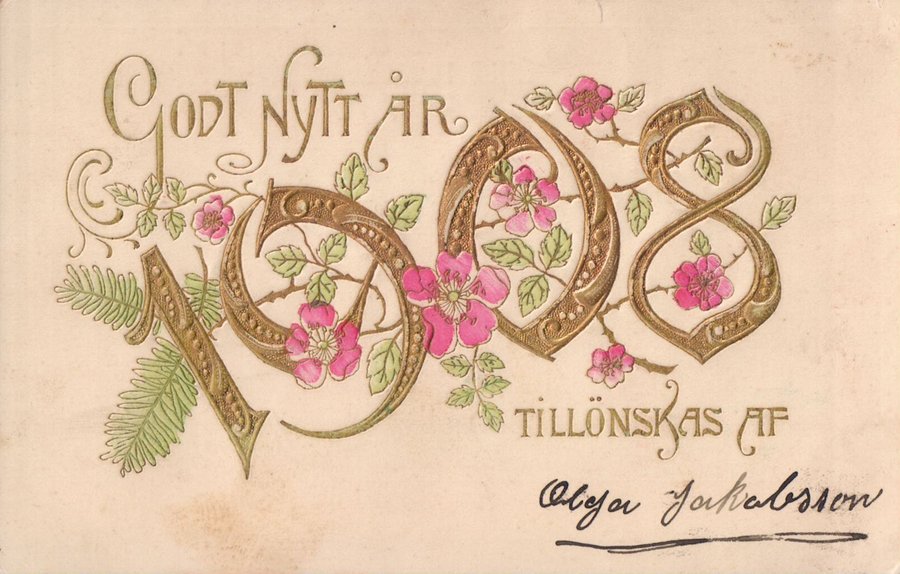 GODT NYTT ÅR
1908
TILLÖNSKAS AF
Olga Jakobsson